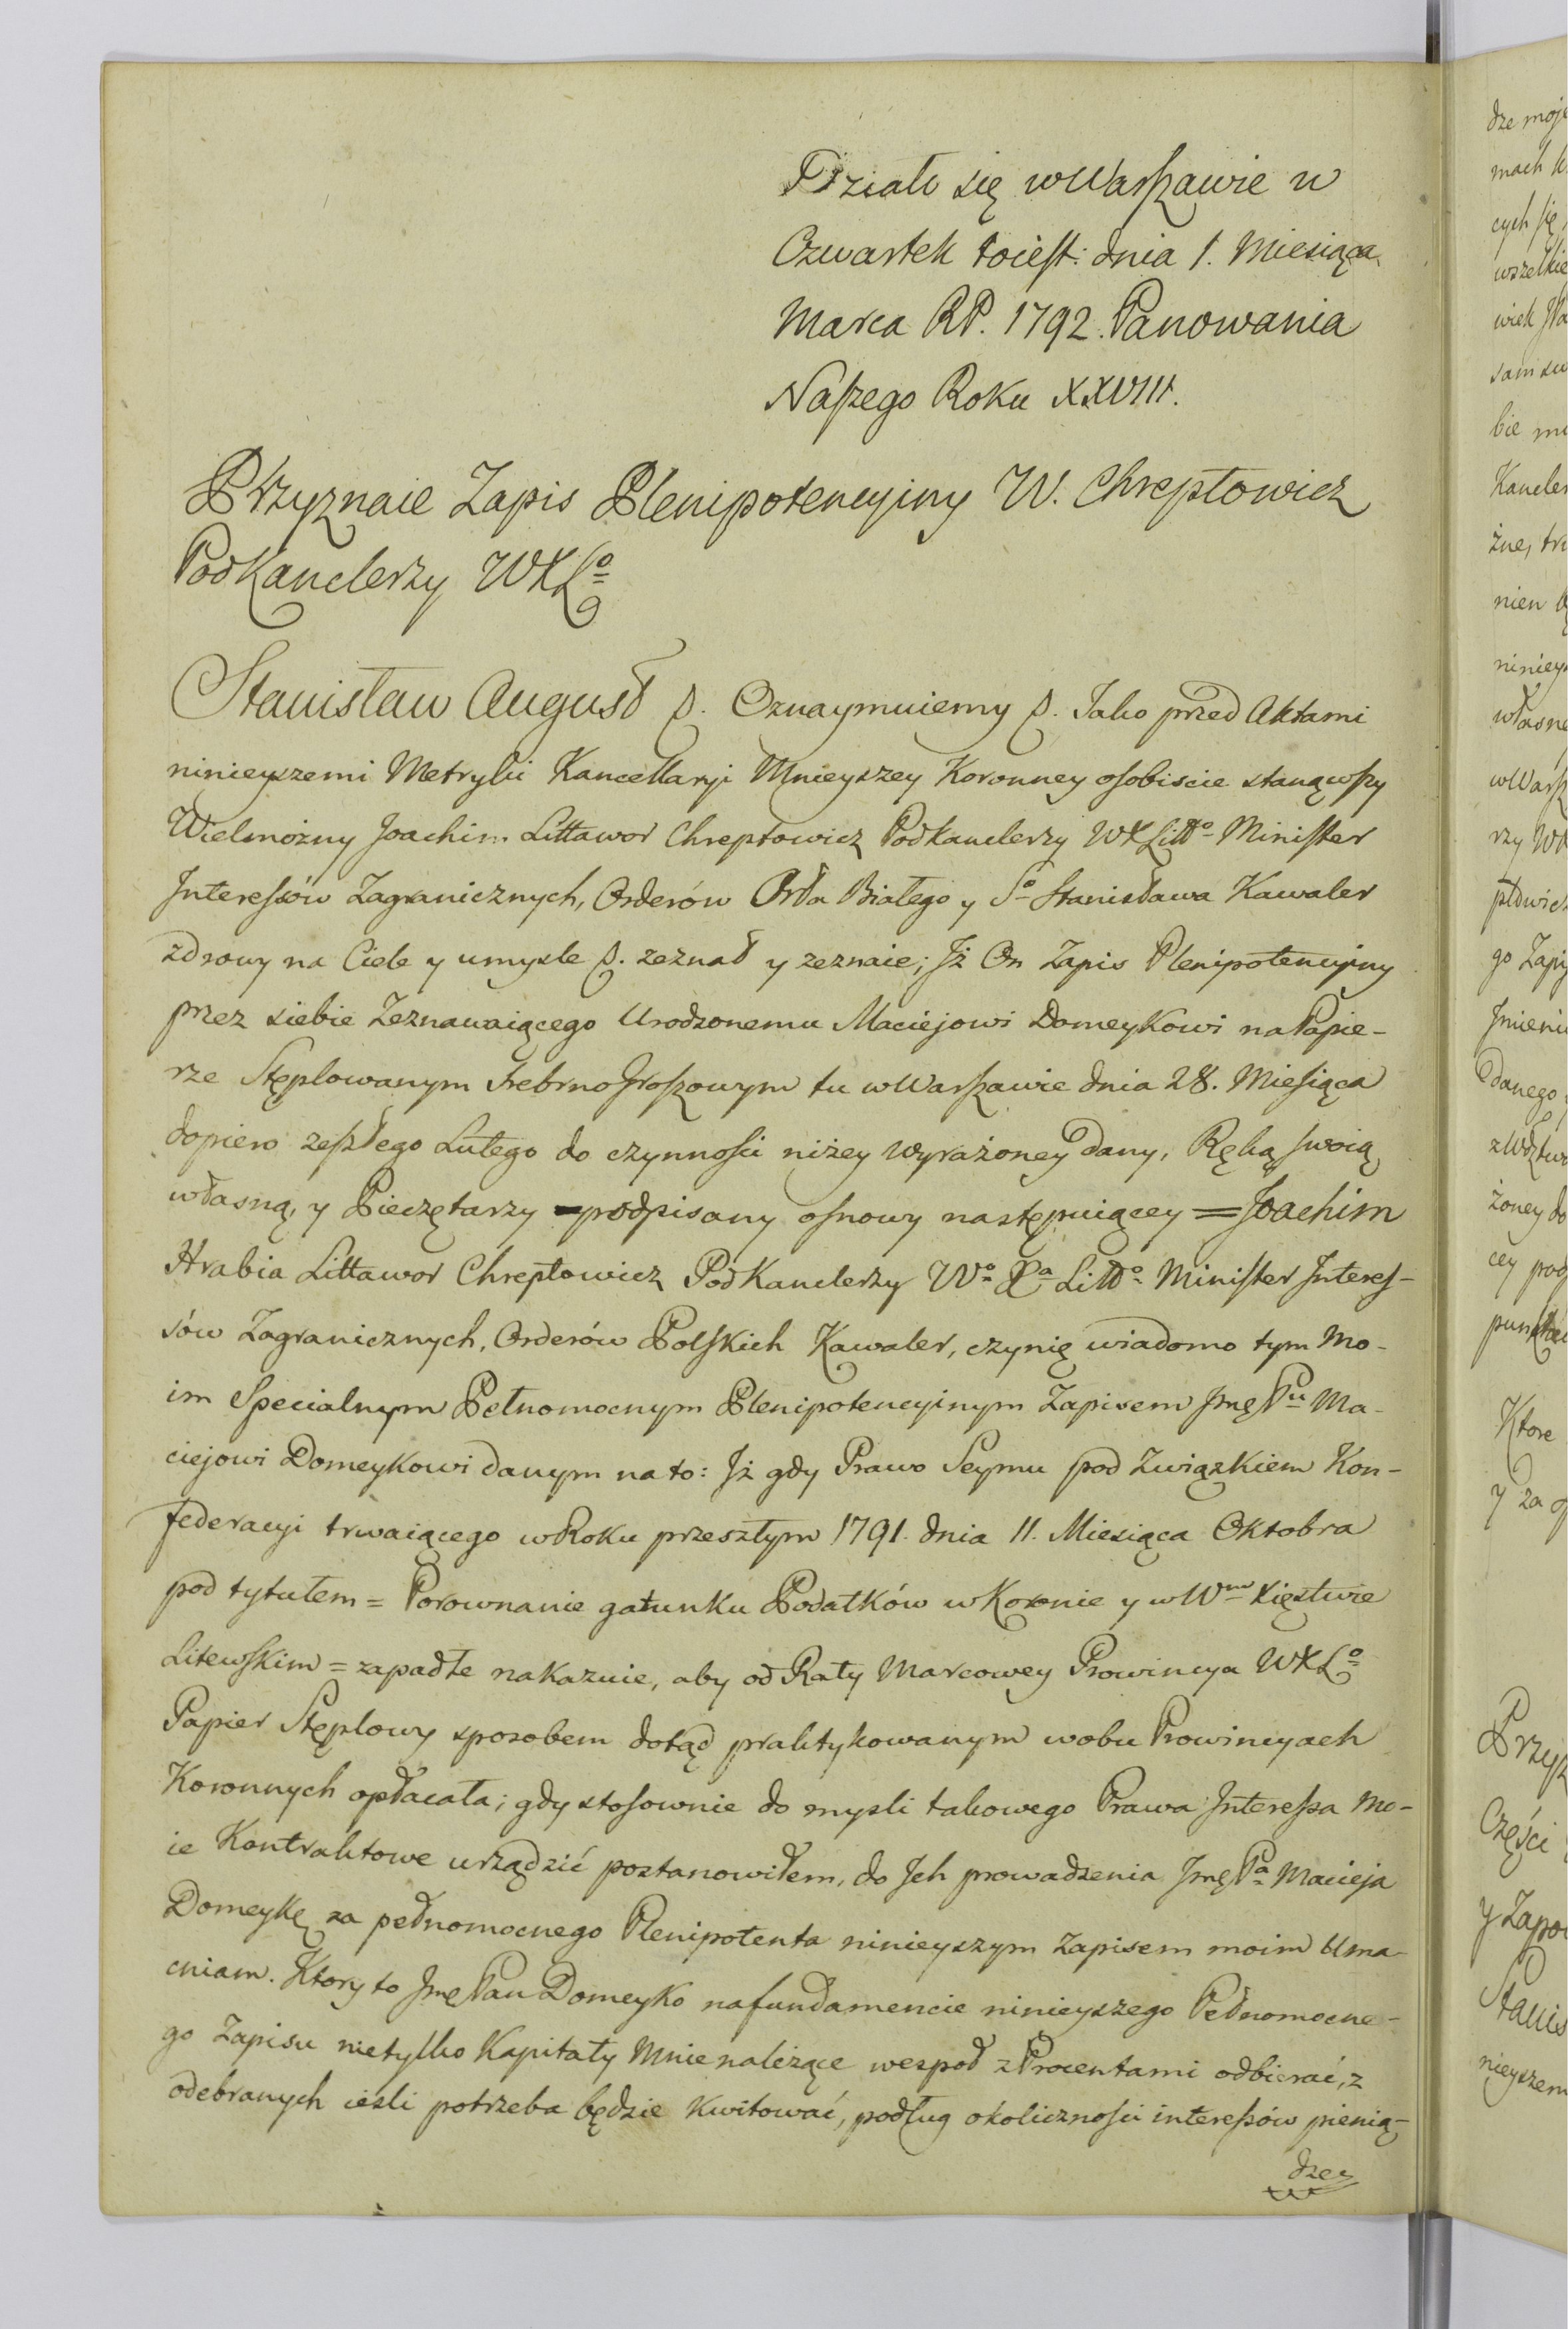 Działo się w Warszawie w
Czwartek toiest: dnia 1. Miesiąca
Marca RP. 1792. Panowania
Naszego Roku XXVIII.
Przyznaie Zapis Plenipotencyiny W. Chreptowicz
Podkanclerzy WXLº
Stanisław August p. Oznaymuiemy p. Iako przed Aktami
ninieyszemi Metryki Kancellaryi Mnieyszey Koronney osobiscie stanąwszy
Wielmożny Joachim Littawor Chreptowicz Podkanclerzy WXLittº Minister
Interessów Zagranicznych, Orderów Orła Białego y Sº Stanisława Kawaler
zdrowy na Ciele y umysle p. zeznał y zeznaie; Jż On Zapis Plenipotencyiny
przez siebie Zeznawaiącego Urodzonemu Maciejowi Domeykowi na Papie-
rze Stęplowanym Srebrno Groszowym tu w Warszawie dnia 28. Miesiąca
dopiero zeszłego Lutego do czynności niżey wyrażoney dany, Ręką swoią
własną, y Pieczętarzy podpisany osnowy następuiącey = Joachim
Hrabia Littawor Chreptowicz Podkanclerzy Wº Xª Littº Minister Interes-
sów Zagranicznych, Orderów Polskich Kawaler, czynię wiadomo tym Mo-
im Specialnym Pełnomocnym Plenipotencyinym Zapisem Jmę Pu Ma-
ciejowi Domeykowi danym na to: Jż gdy Prawo Seymu pod Związkiem Kon-
federacyi trwaiącego w Roku przeszłym 1791. dnia 11. Miesiąca Oktobra
pod tytułem = Porownanie gatunku Podatków w Koronie y w Wm Xięstwie
Litewskim = zapadłe nakazuie, aby od Raty Marcowey Prowincya WXLº
Papier Stęplowy sposobem dotąd praktykowanym w obu Prowincyach
Koronnych opłacała; gdy stosownie do mysli takowego Prawa Interessa Mo-
ie Kontraktowe urządzić postanowiłem, do Jch prowadzenia Jmę Pª Macieja
Domeykę za pełnomocnego Plenipotenta ninieyszym Zapisem moim Uma-
cniam. Ktory to Jmę Pan Domeyko na fundamencie ninieyszego Pełnomocne-
go Zapisu nietylko Kapitały Mnie należące wespoł z Procentami odbierać, z
odebranych ieśli potrzeba będzie Kwitować, podług okoliczności interessów pienią-
dze